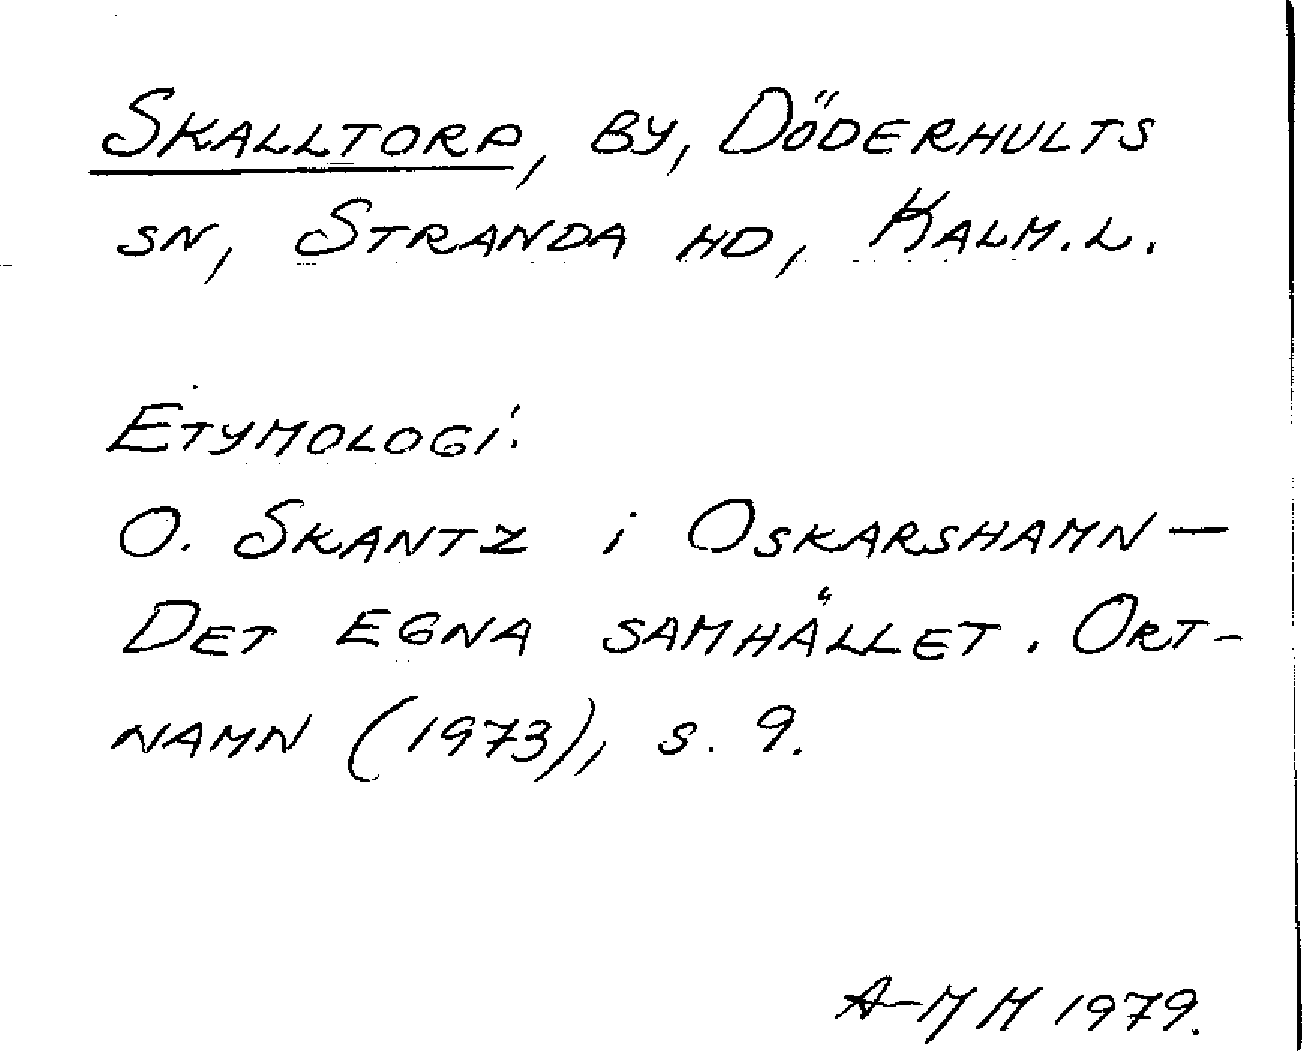 SKALLTORP, BY, DÖDERHULTS
SN, STRANDA HD, KALM.L.
ETYMOLOGI:
O. SKANTZ i OSKARSHAMN —
DET EGNA SAMHÄLLET. ORT-
NAMN (1973), S. 9.
A-MH 1979.